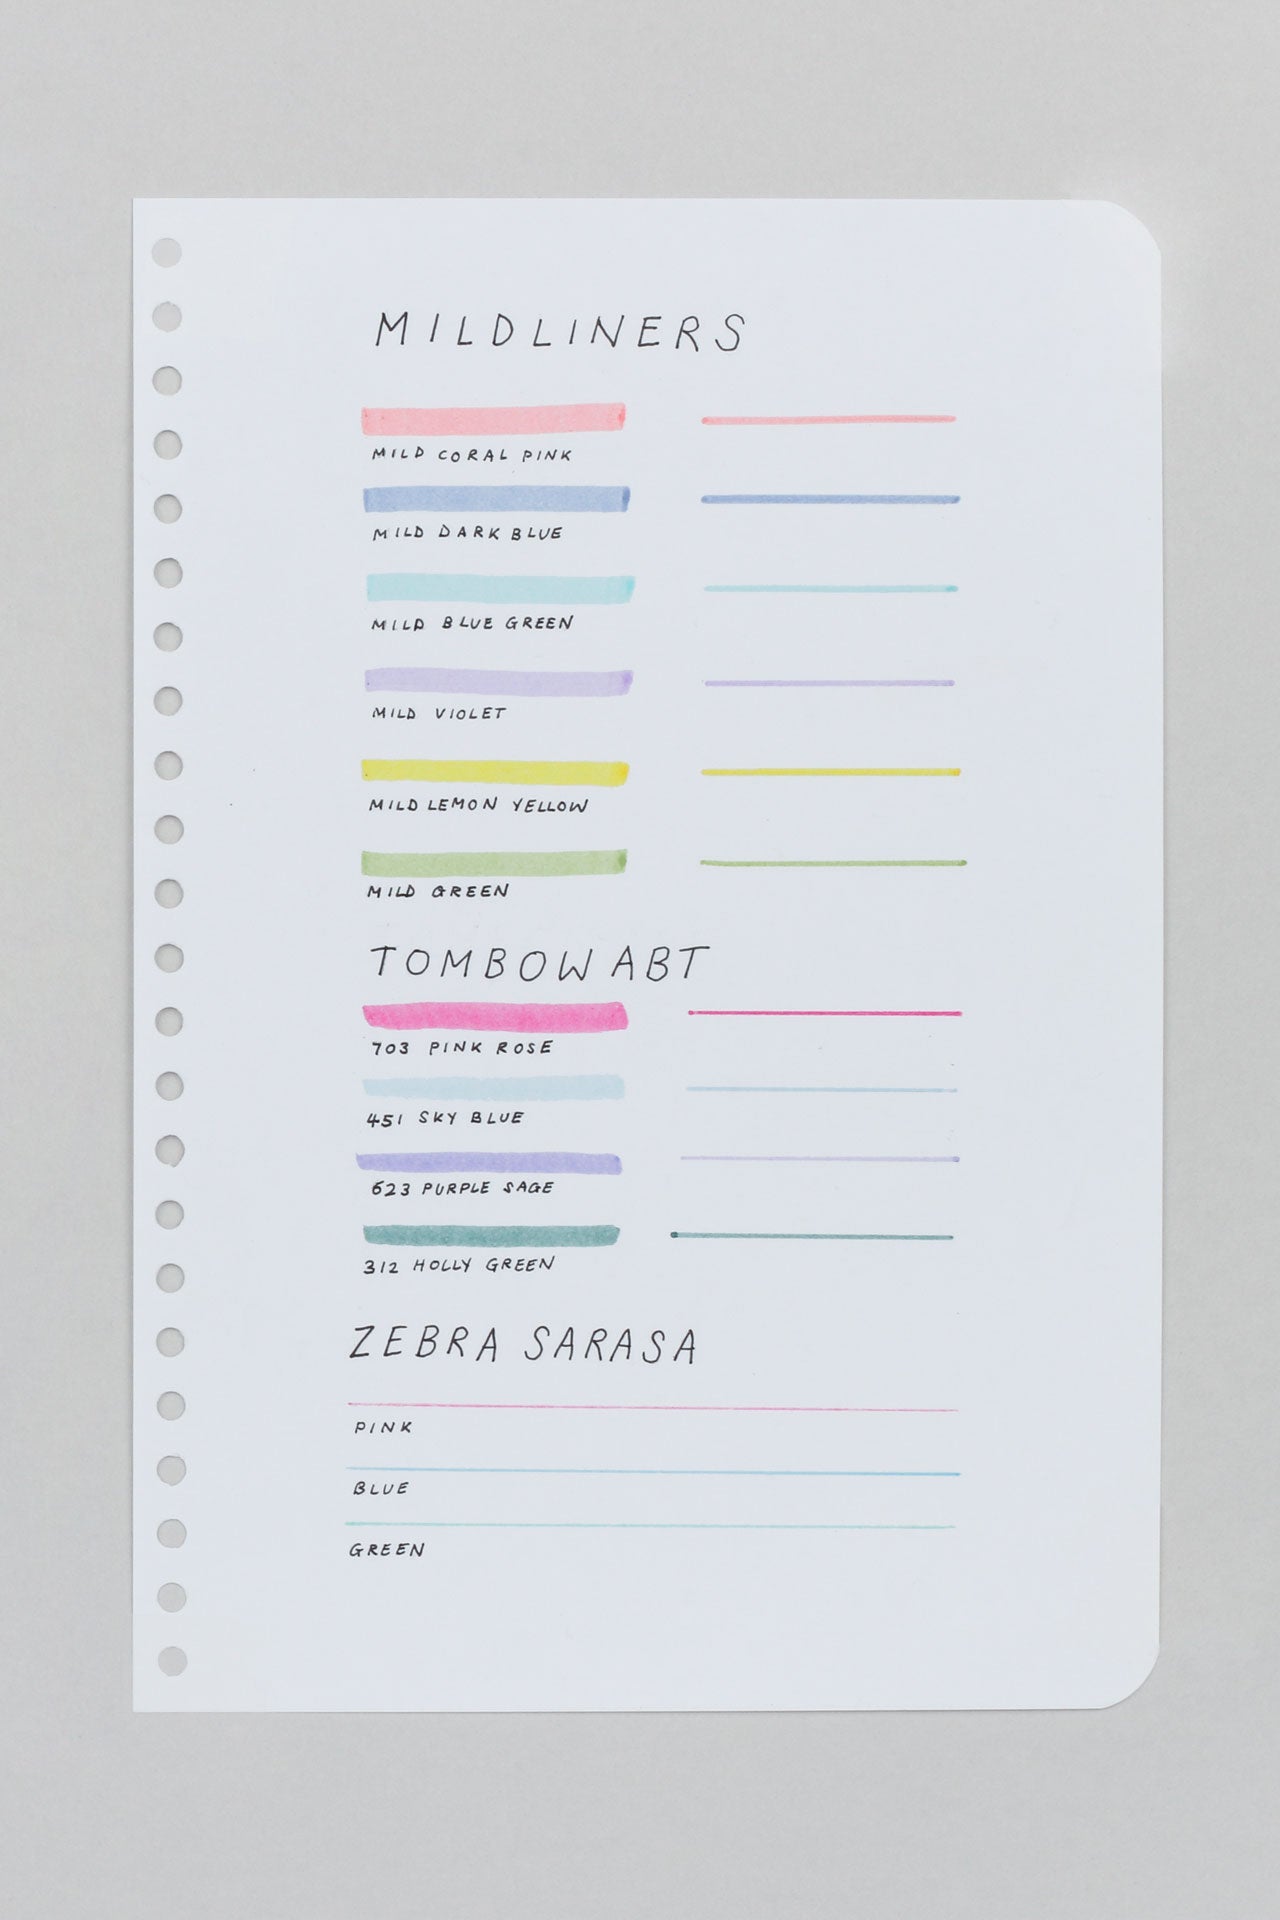 MILDLINERS
MILD CORAL PINK
MILD DARK BLUE
MILD BLUE GREEN
MILD VIOLET
MILD LEMON YELLOW
MILD GREEN
TOMBOW ABT
703 PINK ROSE
451 SKY BLUE
623 PURPLE SAGE
312 HOLLY GREEN
ZEBRA SARASA
PINK
BLUE
GREEN